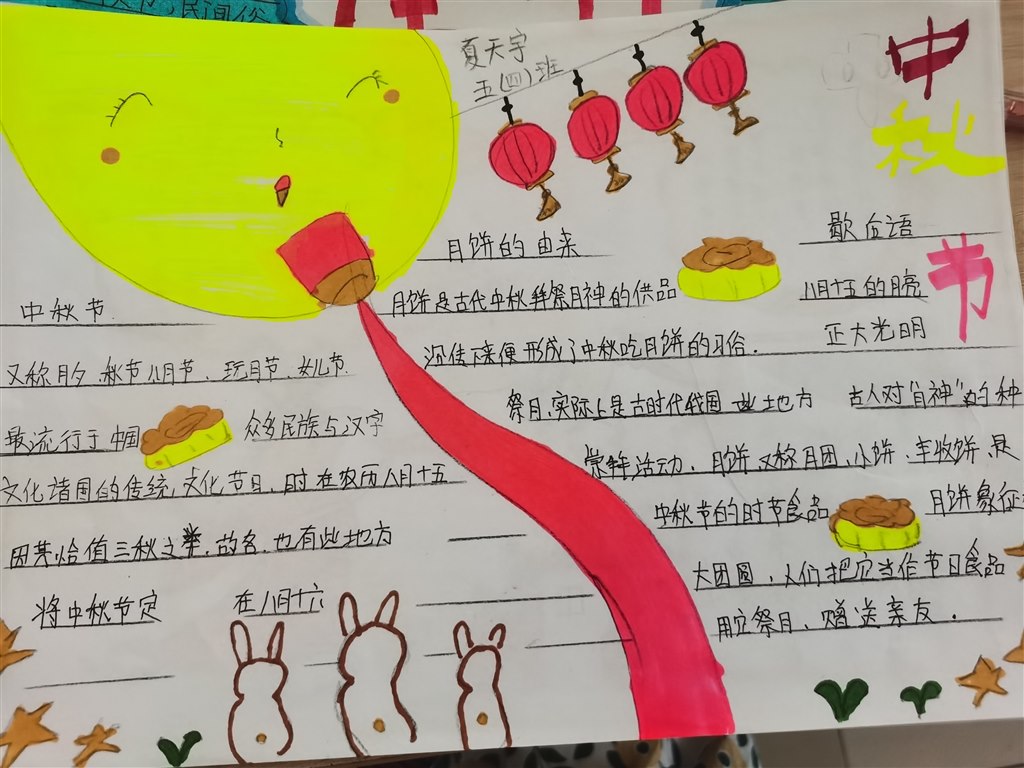 民间俗
夏天宇
五(四)班
中
秋
节
中秋节
又称月夕、秋节、八月节、玩月节、女儿节
最流行于中国
众多民族与汉字
文化诸国的传统文化节日,时在农历八月十五
因其恰值三秋之半,故名,也有些地方
将中秋节定
在八月十六
月饼的由来
月饼是古代中秋拜祭月神的供品
沿传下来便形成了中秋吃月饼的习俗.
祭月,实际上是古时代我国一些地方
古人对"月神"的种
崇拜活动.月饼,又称月团、小饼、丰收饼,是
中秋节的时节食品
月饼象征
大团圆,人们把它当作节日食品
用它祭月、赠送亲友.
歇后语
八月十五的月亮
正大光明